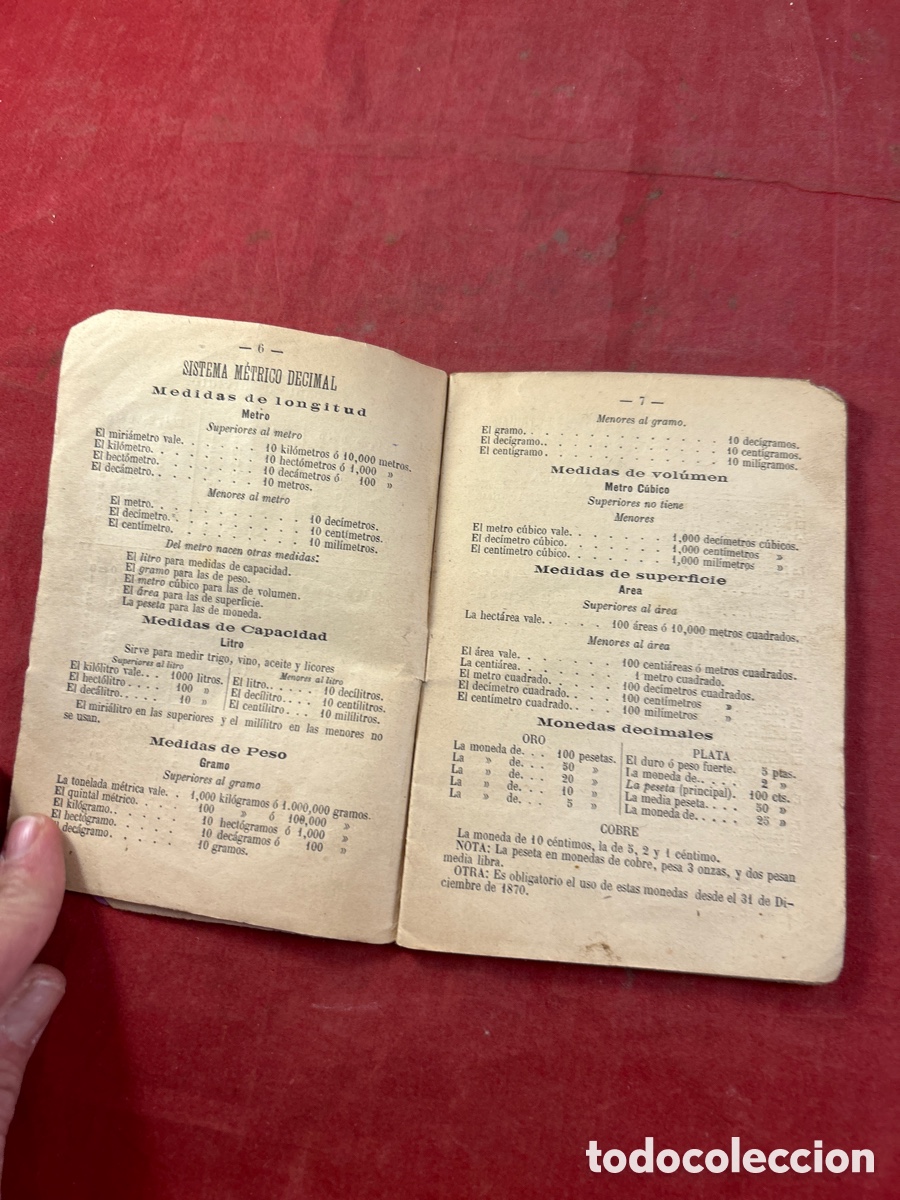 — 6 —
SISTEMA MÉTRICO DECIMAL
Medidas de longitud
Metro
Superiores al metro
El miriámetro vale. . . . . 10 kilómetros ó 10,000 metros.
El kilómetro. . . . . . 10 hectómetros ó 1,000 »
El hectómetro. . . . . . 10 decámetros ó 100 »
El decámetro. . . . . . 10 metros.
Menores al metro
El metro. . . . . . . . 10 decímetros.
El decímetro. . . . . . . 10 centímetros.
El centímetro. . . . . . . 10 milímetros.
Del metro nacen otras medidas:
El litro para medidas de capacidad.
El gramo para las de peso.
El metro cúbico para las de volumen.
El área para las de superficie.
La peseta para las de moneda.
Medidas de Capacidad
Litro
Sirve para medir trigo, vino, aceite y licores
Superiores al litro
El kilólitro vale. . . 1000 litros.
El hectólitro . . . . 100 »
El decálitro. . . . . 10 »
Menores al litro
El litro. . . . . 10 decilitros.
El decílitro. . . . 10 centilitros.
El centílitro. . . . 10 millitros.
El miriálitro en las superiores y el mililitro en las menores no
se usan.
Medidas de Peso
Gramo
Superiores al gramo
La tonelada métrica vale. . 1,000 kilógramos ó 1.000,000 gramos.
El quintal métrico. . . . 100 » ó 100,000 »
El kilógramo. . . . . 10 hectógramos ó 1,000 »
El hectógramo. . . . . 10 decágramos ó 100 »
decágramo. . . . . . 10 gramos.
— 7 —
Menores al gramo.
El gramo. . . . . . . . . . 10 decígramos.
El decígramo. . . . . . . . . 10 centígramos.
El centígramo . . . . . . . . 10 milígramos.
Medidas de volúmen
Metro Cúbico
Superiores no tiene
Menores
El metro cúbico vale. . . . . . 1,000 decímetros cúbicos.
El decímetro cúbico. . . . . . 1,000 centímetros »
El centímetro cúbico. . . . . . 1,000 milímetros »
Medidas de superficie
Area
Superiores al área
La hectárea vale. . . . . 100 áreas ó 10,000 metros cuadrados.
Menores al área
El área vale. . . . . . . 100 centiáreas ó metros cuadrados.
La centiárea. . . . . . . 1 metro cuadrado.
El metro cuadrado. . . . . . 100 decímetros cuadrados.
El decímetro cuadrado. . . . . 100 centímetros »
El centímetro cuadrado. . . . . 100 milímetros »
Monedas decimales
ORO
La moneda de. . . 100 pesetas.
La » de. . . 50 »
La » de. . . 20 »
La » de. . . 10 »
La » de. . . 5 »
PLATA
El duro ó peso fuerte. 5 ptas.
La moneda de. . . 2 »
La peseta (principal). 100 cts.
La media peseta. . . . 50 »
La moneda de. . . . 25 »
COBRE
La moneda de 10 céntimos, la de 5, 2 y 1 céntimo.
NOTA: La peseta en monedas de cobre, pesa 3 onzas, y dos pesan
media libra.
OTRA: Es obligatorio el uso de estas monedas desde el 31 de Di-
ciembre de 1870.
todocoleccion